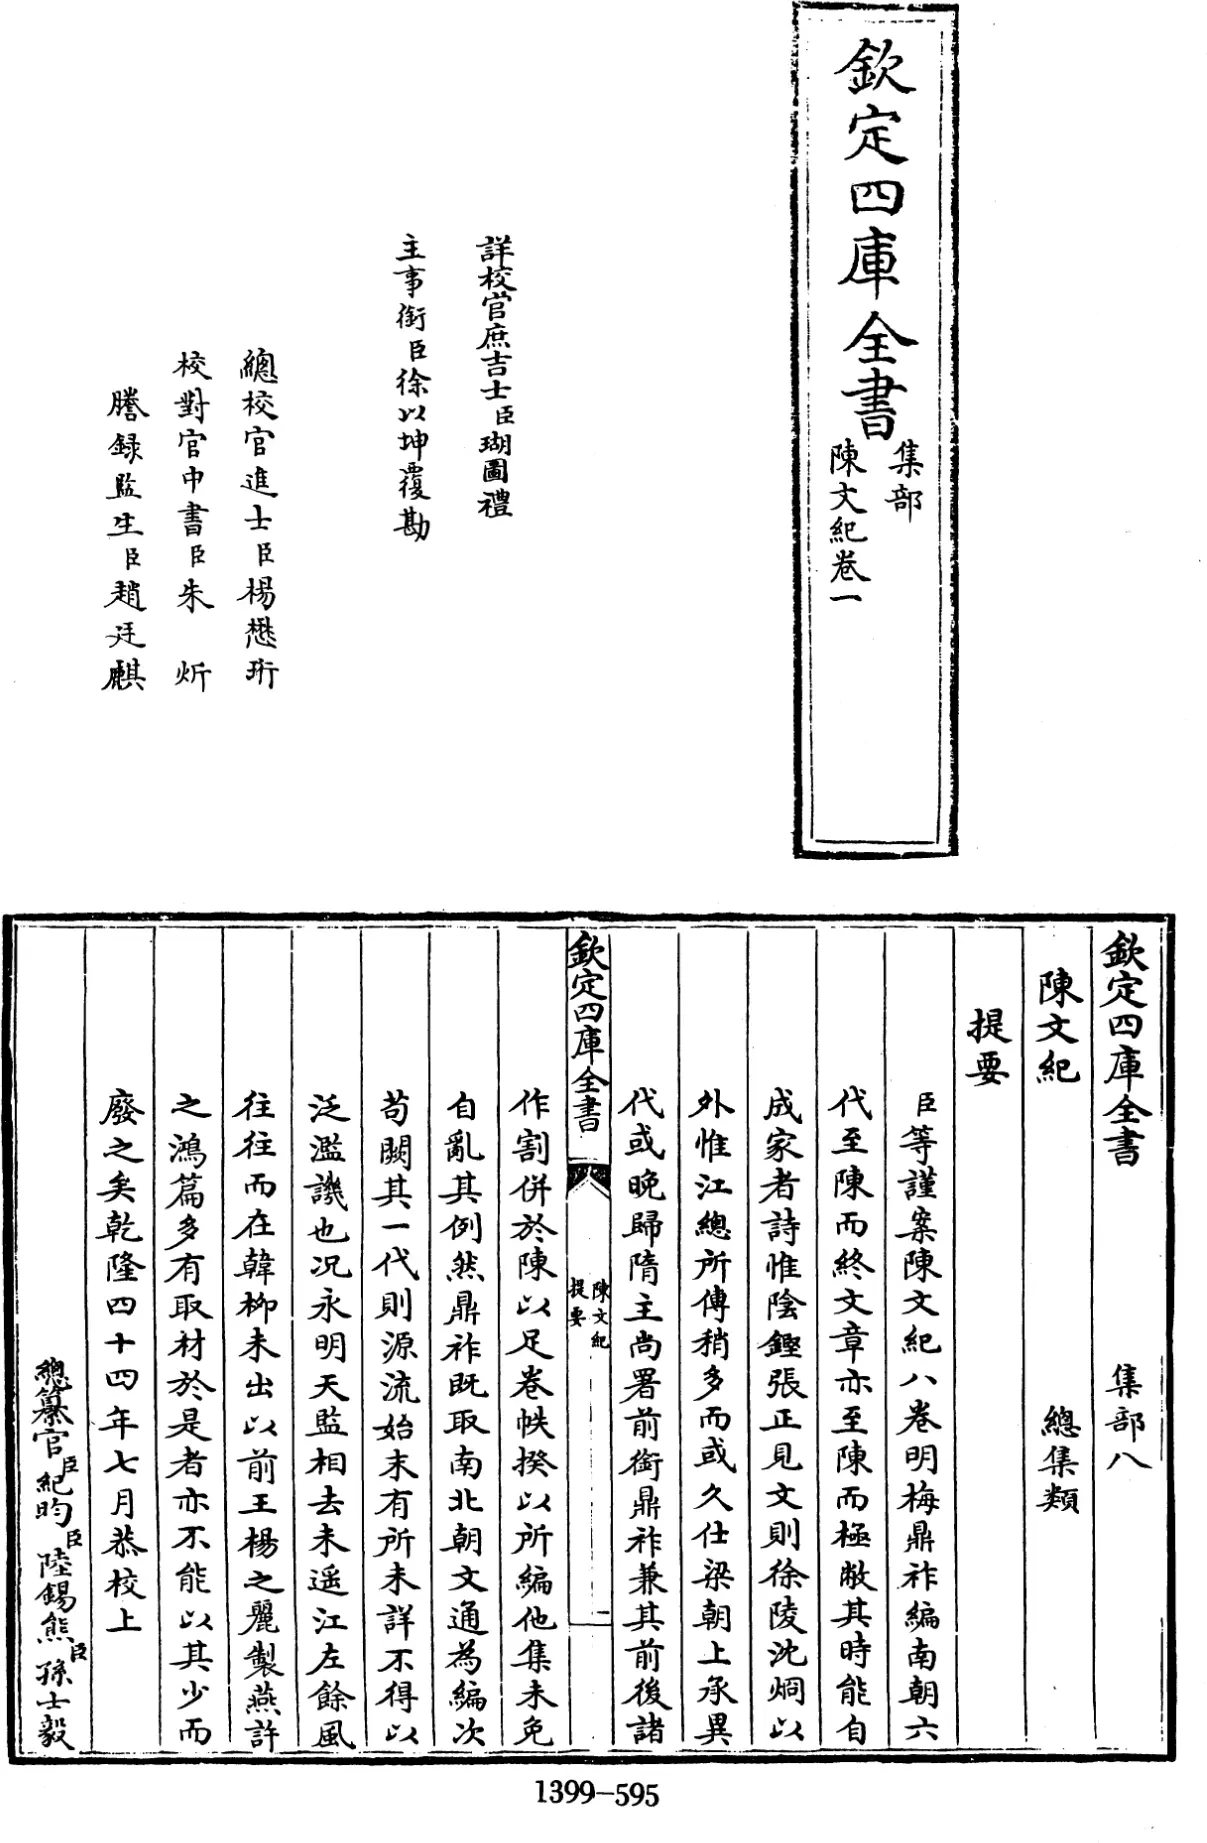 欽定四庫全書
集部
陳文紀卷一
詳校官庶吉士臣瑚圖禮
主事銜臣徐以坤覆勘
總校官進士臣楊懋珩
校對官中書臣朱炘
謄録監生臣趙廷麒
欽定四庫全書 集部八
陳文紀 總集類
提要
臣等謹案陳文紀八卷明梅鼎祚編南朝六
代至陳而終文章亦至陳而極敝其時能自
成家者詩惟陰鏗張正見文則徐陵沈烱以
外惟江總所傳稍多而或久仕梁朝上承異
代或晚歸隋主尚署前銜鼎祚兼其前後諸
欽定四庫全書
陳文紀
提要
二
作割併於陳以足卷帙揆以所編他集未免
自亂其例然鼎祚既取南北朝文通為編次
茍闕其一代則源流始末有所未詳不得以
泛濫譏也况永明天監相去未遥江左餘風
往往而在韓栁未出以前王楊之麗製燕許
之鴻篇多有取材於是者亦不能以其少而
廢之矣乾隆四十四年七月恭校上
總纂官臣紀昀臣陸錫熊臣孫士毅
1399-595